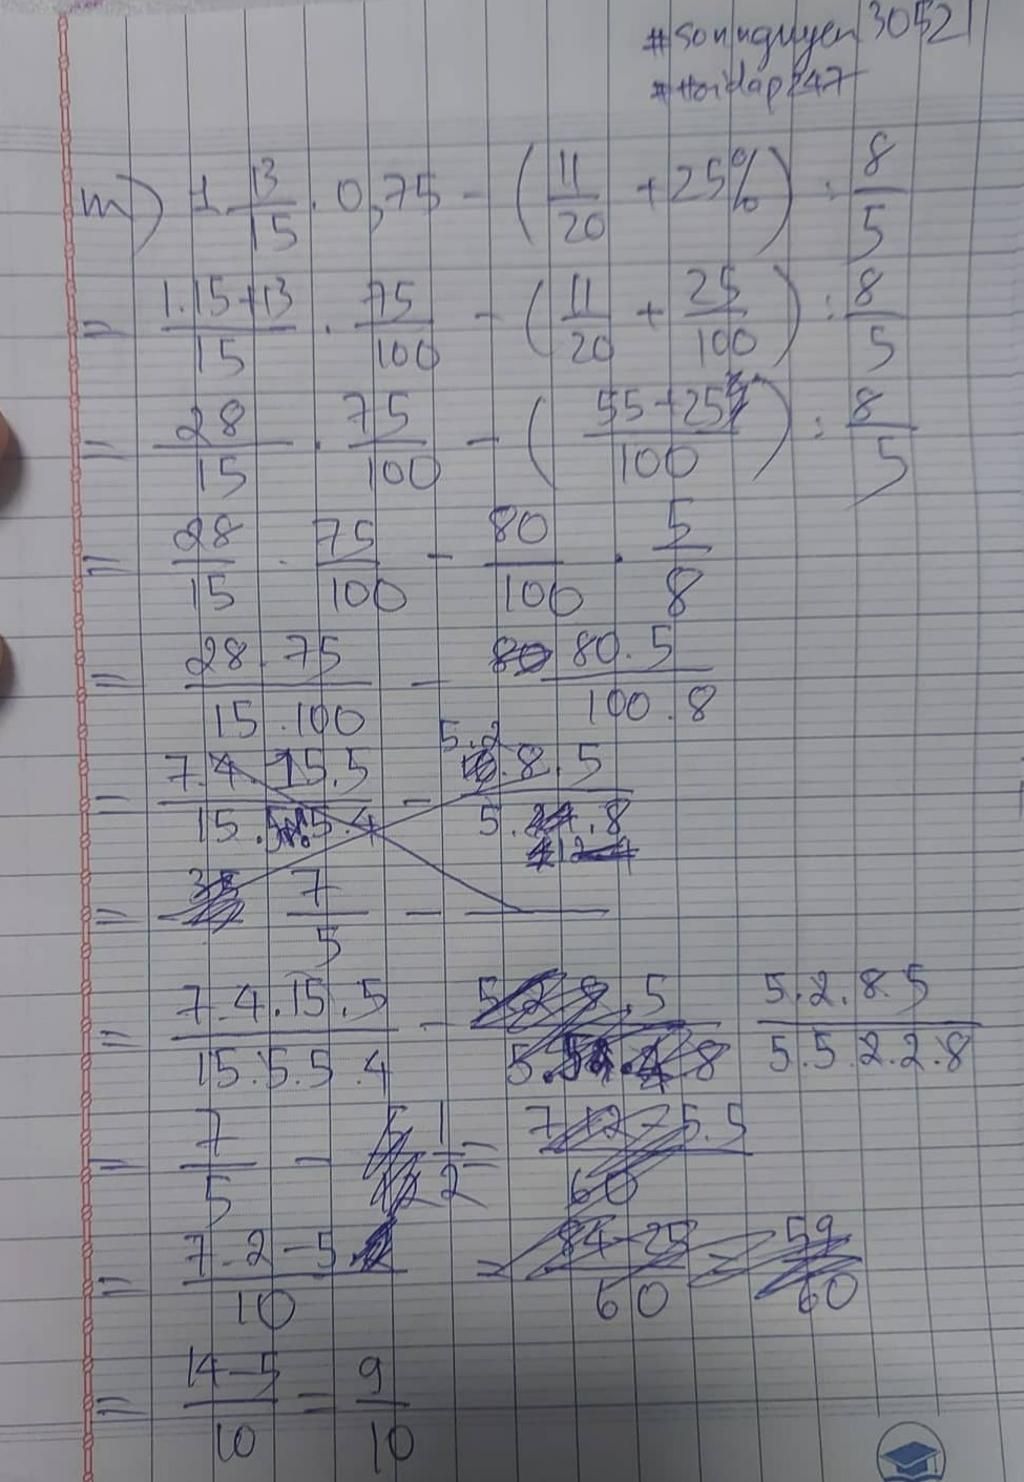 #sonnguyen30521
#Hoidap247
m) 1 13/15 . 0,75 - (11/20 + 25%) : 8/5
= (1.15+13)/15 . 75/100 - (11/20 + 25/100) : 8/5
= 28/15 . 75/100 - ((55+25)/100) : 8/5
= 28/15 . 75/100 - 80/100 . 5/8
= (28.75)/(15.100) - (80.5)/(100.8)
= (7.4.15.5)/(15.5.5.4) - (5.2.8.5)/(5. .8)
= 7/5 -
= (7.4.15.5)/(15.5.5.4) - (5.2.8.5)/(5.5.2.2.8)
= 7/5 - 1/2 =
= (7.2-5)/10
= (14-5)/10 = 9/10